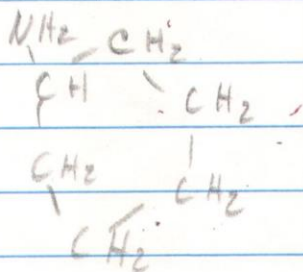 NH2
CH2
CH
CH2
CH2
CH2
CH2